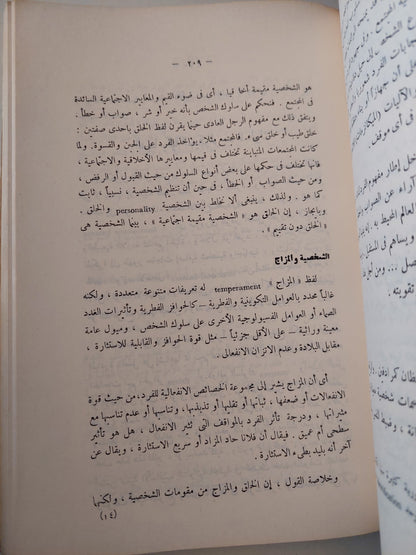 — ٢٠٩ —
هو الشخصية مقيمة أخلاقيا ، أى فى ضوء القيم والمعايير الاجتماعية السائدة
فى المجتمع . فنحكم على سلوك الشخص بأنه خير أو شر ، صواب أو خطأ .
ويتفق ذلك مع مفهوم الرجل العادى حينما يقرن لفظ الخلق باحدى صفتين :
خلق طيب أو خلق سىء . فالمجتمع مثلا يؤاخذ الفرد على الجبن والقسوة . ولما
كانت المجتمعات المتباينة تختلف فى قيمها ومعاييرها الأخلاقية والاجتماعية ،
فانها تختلف فى حكمها على بعض أنواع السلوك من حيث القبول أو الرفض ،
ومن حيث الصواب أو الخطأ ، فى حين أن تنظيم الشخصية ، نسبياً ، ثابت
كما هو . ولذلك ، ينبغى ألا نخلط بين الشخصية personality والخلق .
وبإيجاز ، إن الخلق هو « الشخصية مقيمة اجتماعية » ، بينما الشخصية هى
« الخلق دون تقييم » .
الشخصية والمزاج
لفظ « المزاج » temperament له تعريفات متنوعة متعددة ، ولكنه
غالباً محدد بالعوامل التكوينية والفطرية — كالحوافز الفطرية وتأثيرات الغدد
الصماء أو العوامل الفسيولوجية الأخرى على سلوك الشخص ، وميول عامة
معينة وراثية — على الأقل جزئياً — مثل قوة الحوافز والقابلية للاستثارة ،
مقابل البلادة وعدم الاتزان الانفعالى .
أى أن المزاج يشير إلى مجموعة الخصائص الانفعالية للفرد ، من حيث قوة
الانفعالات أو ضعفها ، ثباتها أو تقلبها أو تذبذبها ، وتناسبها أو عدم تناسبها مع
مثيراتها ، ودرجة تأثر الفرد بالمواقف التى تثير الانفعال ، هل هو تأثير
سطحى أم عميق . فيقال أن فلانا حاد المزاد أو سريع الاستثارة ، ويقال عن
آخر أنه بليد بطىء الاستثارة .
وخلاصة القول ، إن الخلق والمزاج من مقومات الشخصية ، ولكنها
(١٤)